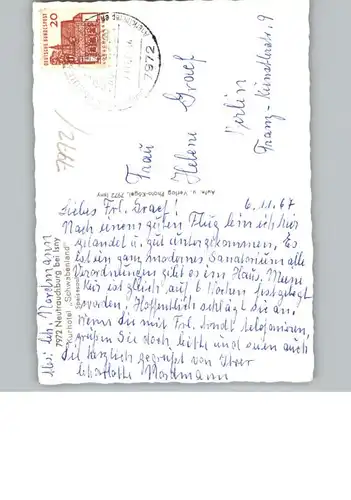 DEUTSCHE BUNDESPOST
20
7972
Frau
Helene Graef
Berlin
Franz-Künstlerstr. 9
Aufn. u. Verlag Photo-Kögel, 7972 Isny
Kurhotel „Schwabenland"
7972 Neutrauchburg bei Isny
Abs: Ch. Nordmann
6.11.67
Liebes Frl. Graef!
Nach einem guten Flug bin ich hier
gelandet u. gut untergekommen. Es
ist ein ganz modernes Sanatorium alle
Verordnungen gibt es im Haus. Meine
Kur ist gleich auf 6 Wochen festgelegt
worden. Hoffentlich schlägt sie an.
Wenn Sie mit Frl. telefonieren,
grüßen Sie doch bitte und seien auch
Sie herzlich gegrüßt von Ihrer
Charlotte Nordmann